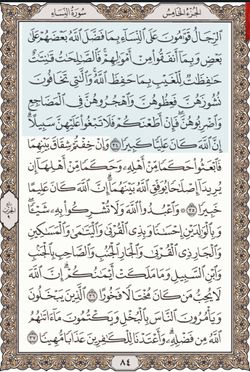 الجزء الخامس
سورة النساء
ٱلرِّجَالُ قَوَّٰمُونَ عَلَى ٱلنِّسَآءِ بِمَا فَضَّلَ ٱللَّهُ بَعْضَهُمْ عَلَىٰ
بَعْضٍ وَبِمَآ أَنفَقُوا۟ مِنْ أَمْوَٰلِهِمْ فَٱلصَّٰلِحَٰتُ قَٰنِتَٰتٌ
حَٰفِظَٰتٌ لِّلْغَيْبِ بِمَا حَفِظَ ٱللَّهُ وَٱلَّٰتِى تَخَافُونَ
نُشُوزَهُنَّ فَعِظُوهُنَّ وَٱهْجُرُوهُنَّ فِى ٱلْمَضَاجِعِ
وَٱضْرِبُوهُنَّ فَإِنْ أَطَعْنَكُمْ فَلَا تَبْغُوا۟ عَلَيْهِنَّ سَبِيلًا
إِنَّ ٱللَّهَ كَانَ عَلِيًّا كَبِيرًا ٣٤ وَإِنْ خِفْتُمْ شِقَاقَ بَيْنِهِمَا
فَٱبْعَثُوا۟ حَكَمًا مِّنْ أَهْلِهِۦ وَحَكَمًا مِّنْ أَهْلِهَآ إِن
يُرِيدَآ إِصْلَٰحًا يُوَفِّقِ ٱللَّهُ بَيْنَهُمَآ إِنَّ ٱللَّهَ كَانَ عَلِيمًا
خَبِيرًا ٣٥ وَٱعْبُدُوا۟ ٱللَّهَ وَلَا تُشْرِكُوا۟ بِهِۦ شَيْـًٔا
وَبِٱلْوَٰلِدَيْنِ إِحْسَٰنًا وَبِذِى ٱلْقُرْبَىٰ وَٱلْيَتَٰمَىٰ وَٱلْمَسَٰكِينِ
وَٱلْجَارِ ذِى ٱلْقُرْبَىٰ وَٱلْجَارِ ٱلْجُنُبِ وَٱلصَّاحِبِ بِٱلْجَنۢبِ
وَٱبْنِ ٱلسَّبِيلِ وَمَا مَلَكَتْ أَيْمَٰنُكُمْ إِنَّ ٱللَّهَ
لَا يُحِبُّ مَن كَانَ مُخْتَالًا فَخُورًا ٣٦ ٱلَّذِينَ يَبْخَلُونَ
وَيَأْمُرُونَ ٱلنَّاسَ بِٱلْبُخْلِ وَيَكْتُمُونَ مَآ ءَاتَىٰهُمُ
ٱللَّهُ مِن فَضْلِهِۦ وَأَعْتَدْنَا لِلْكَٰفِرِينَ عَذَابًا مُّهِينًا ٣٧
٨٤